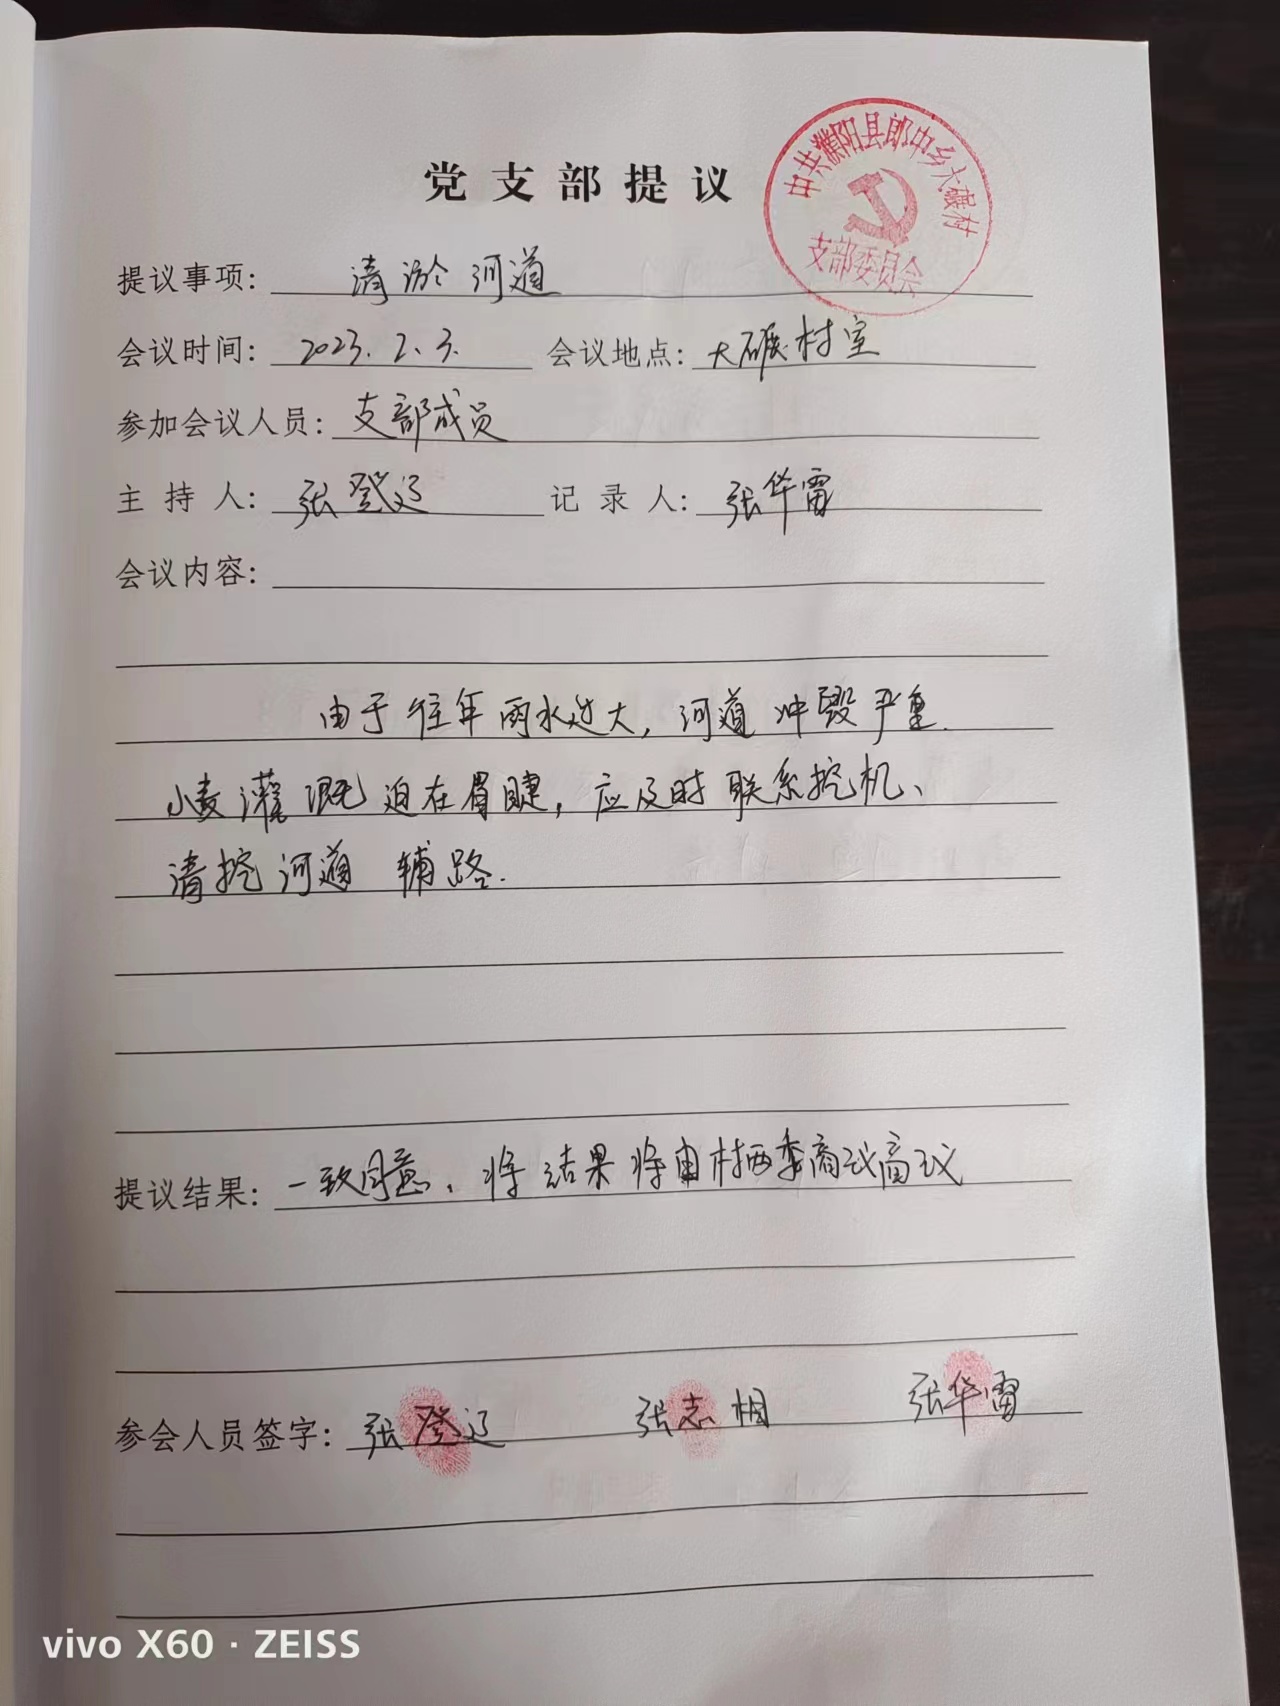 党支部提议
中共濮阳县郎中乡大碾村
支部委员会
提议事项： 清淤河道
会议时间： 2023.2.3. 会议地点： 大碾村室
参加会议人员： 支部成员
主持人： 张登辽 记录人： 张华雷
会议内容：
由于往年雨水过大，河道冲毁严重.
小麦灌溉迫在眉睫，应及时联系挖机、
清挖河道辅路.
提议结果： 一致同意、将结果将由村两委商议商议
参会人员签字： 张登辽 张志相 张华雷
vivo X60 · ZEISS